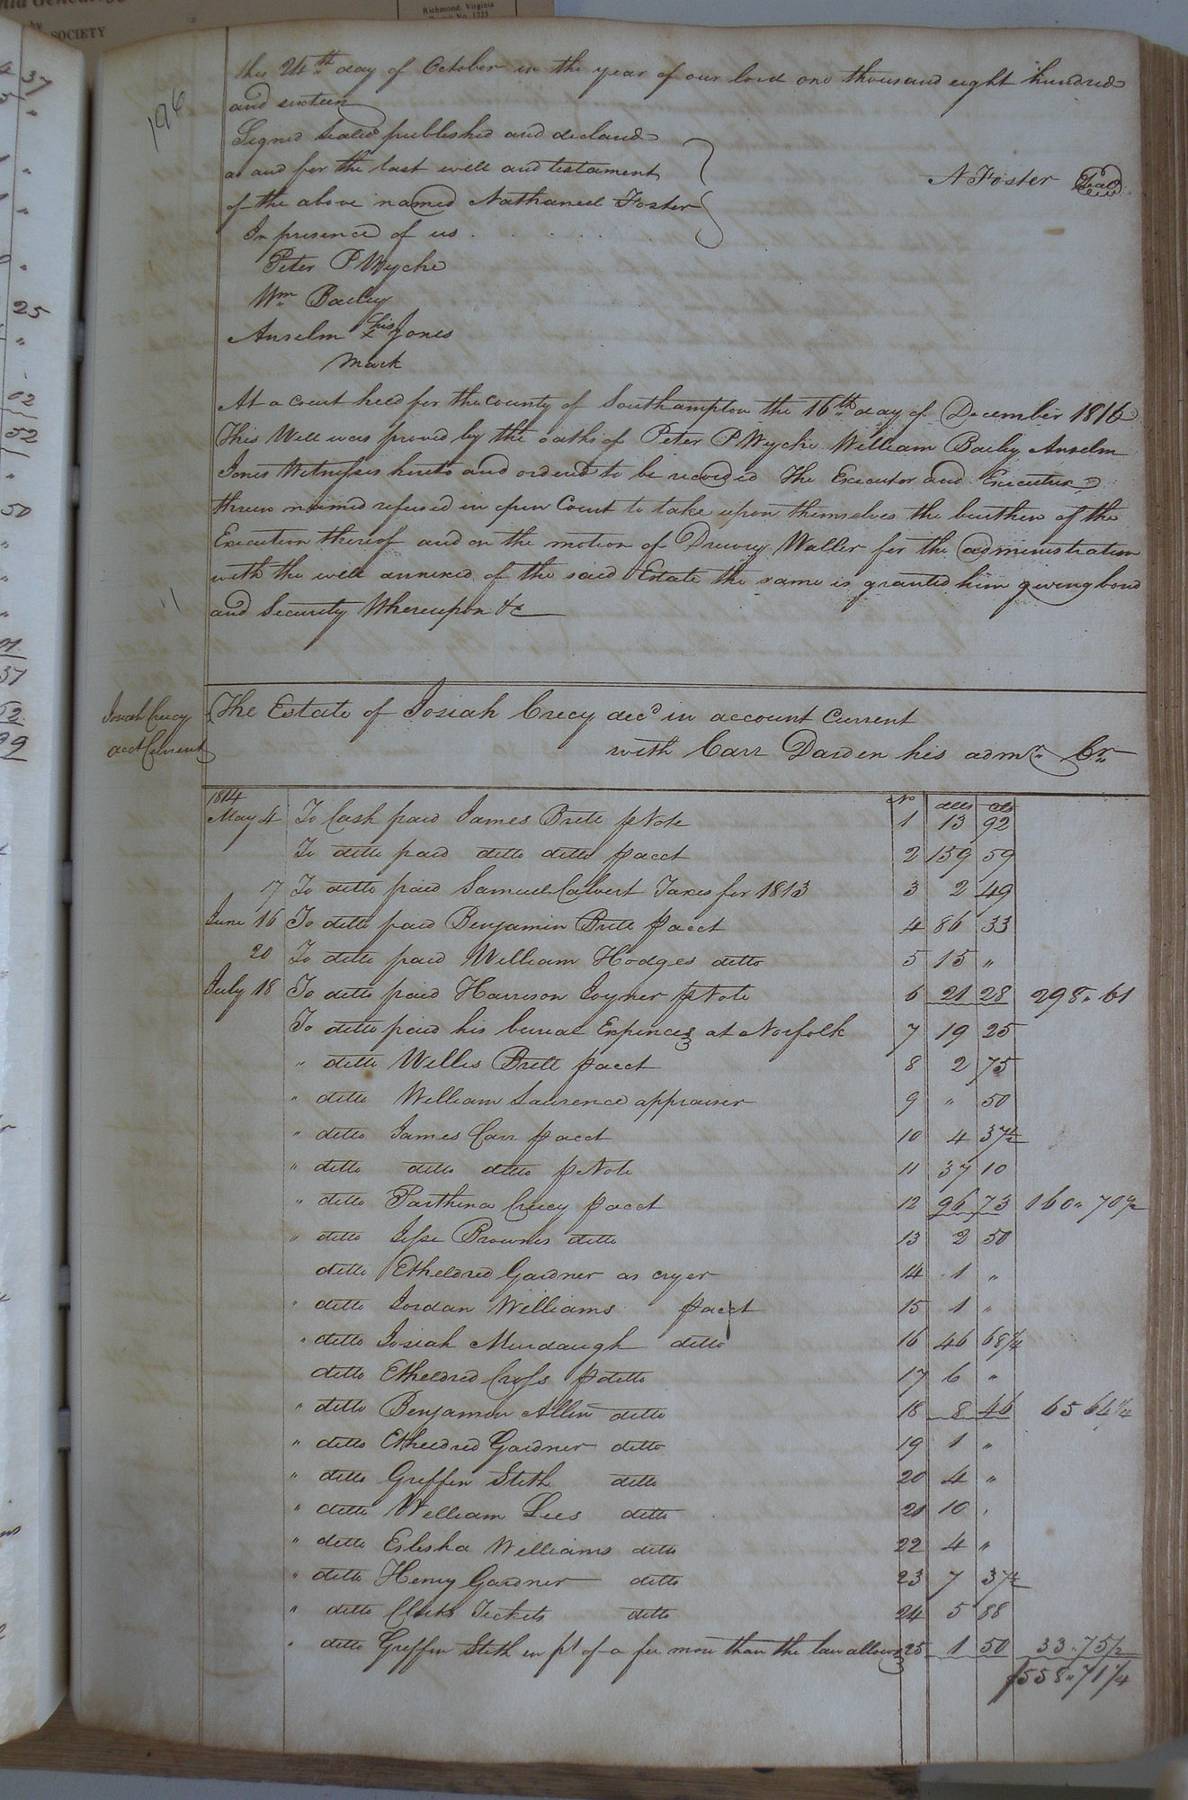 Richmond, Virginia
SOCIETY
196
this 24th day of October in the year of our lord one thousand eight hundred
and sixteen
Signed sealed published and declared
as and for the last will and testament
of the above named Nathaniel Foster
In presence of us . . . . .
A Foster Seal
Peter P Wyche
Wm Bailey
Anselm his x Jones
mark
At a court held for the county of Southampton the 16th day of December 1816
This Will was proved by the oaths of Peter P Wyche William Bailey Anselm
Jones Witnesses hereto and ordered to be recorded The Executor and Executrix
therein named refused in open Court to take upon themselves the burthen of the
Execution thereof and on the motion of Drewry Waller for the administration
with the will annexed of the said Estate the same is granted him giving bond
and Security Whereupon &c
Josiah Crecy
acct Current
The Estate of Josiah Crecy decd in account Current
with Carr Darden his admr Cr
1814 No dolls cts
May 4 To Cash paid James Brett p Note 1 13 92
To ditto paid ditto ditto p acct 2 159 59
17 To ditto paid Samuel Calvert Taxes for 1813 3 2 49
June 16 To ditto paid Benjamin Brett p acct 4 86 33
20 To ditto paid William Hodges ditto 5 15 "
July 18 To ditto paid Harrison Joyner p Note 6 21 28 298 " 61
To ditto paid his burial Expences at Norfolk 7 19 25
" ditto Willis Brett p acct 8 2 75
" ditto William Laurence appraiser 9 " 50
" ditto James Carr p acct 10 4 37½
" ditto ditto ditto p Note 11 37 10
" ditto Parthena Crecy p acct 12 96 73 160 " 70½
" ditto Jesse Browns ditto 13 2 50
ditto Etheldred Gardner as cryer 14 1 "
" ditto Jordan Williams p acct 15 1 "
" ditto Josiah Murdaugh ditto 16 46 68¼
ditto Etheldred Cross p ditto 17 6 "
" ditto Benjamin Allen ditto 18 8 46 65 64¼
" ditto Etheldred Gardner ditto 19 1 "
" ditto Griffin Stith ditto 20 4 "
" ditto William Lees ditto 21 10 "
" ditto Eslisha Williams ditto 22 4 "
" ditto Henry Gardner ditto 23 7 37½
" ditto Clerks Tickets ditto 24 5 88
" ditto Griffin Stith in pt of a fee more than the law allows 25 1 50 33 " 75½
$558 " 71¼